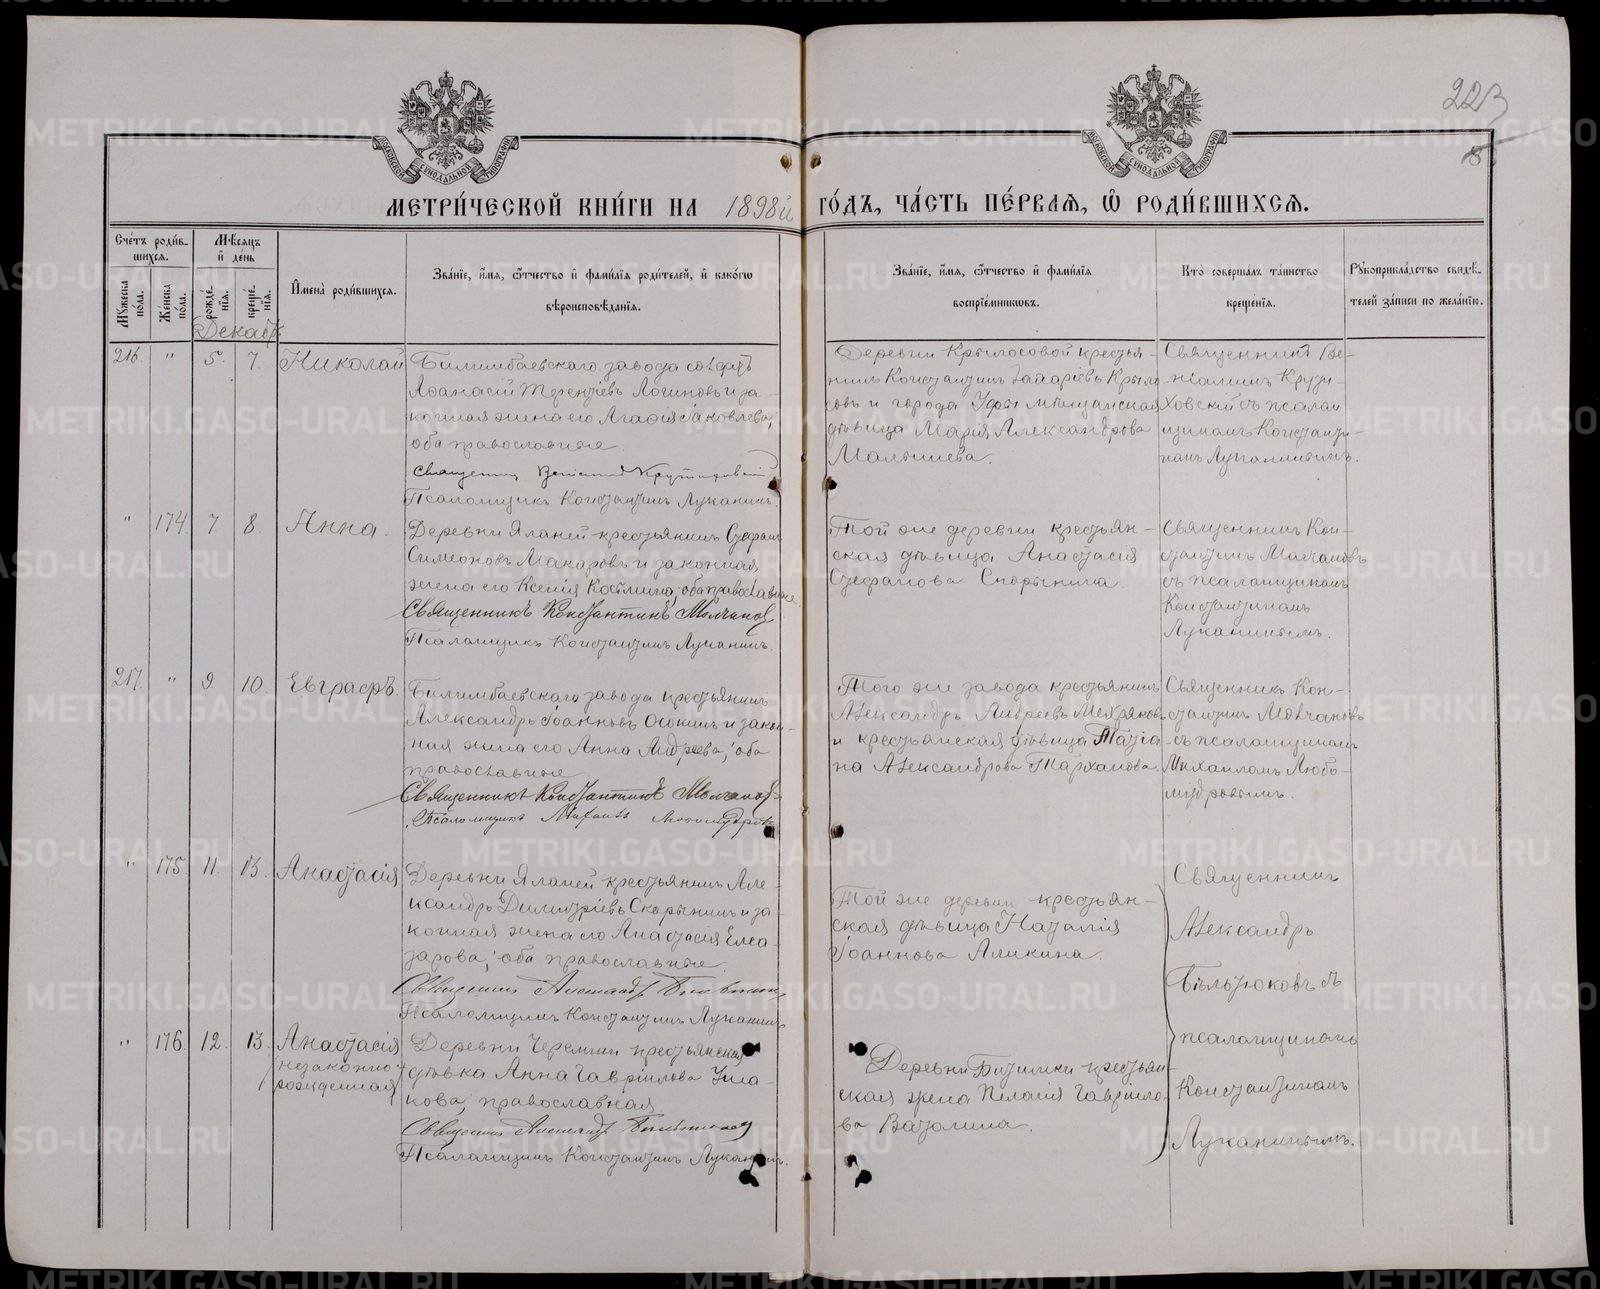 223
МОСКОВСКОЙ СѴНОДАЛЬНОЙ ТИПОГРАФІИ
МОСКОВСКОЙ СѴНОДАЛЬНОЙ ТИПОГРАФІИ
МЕТРИ́ЧЕСКОЙ КНИ́ГИ НА 1898й ГО́ДЪ, ЧА́СТЬ ПЕ́РВАѦ, Ѽ РОДИ́ВШИХСѦ.
Сче́тъ роди́в-
шихсѧ.
Мꙋ́жеска по́ла.
Же́нска по́ла.
Мѣ́сѧцъ и҆ де́нь
рожде́-нїѧ.
креще́-нїѧ.
И҆мена̀ роди́вшихсѧ.
Зва́нїе, и҆́мѧ, ѻ҆́тчество и҆ фами́лїѧ роди́телей, и҆ како́гѡ
вѣроисповѣ́данїѧ.
Зва́нїе, и҆́мѧ, ѻ҆́тчество и҆ фами́лїѧ
воспрїе́мникѡвъ.
Кто̀ соверша́лъ та́инство
креще́нїѧ.
Рꙋкоприкла́дство свидѣ́-
телей за́писи по жела́нїю.
Декабрь
216. " 5. 7. Николай
Билимбаевскаго завода солдатъ
Аѳанасій Терентіевъ Логиновъ и за-
конная жена его Агаѳія Іаковлева,
оба православные.
Священникъ Веніаминъ Крутиховскій
Псаломщикъ Константинъ Луканинъ.
Деревни Крылосовой крестья-
нинъ Константинъ Захаріевъ Крыло
совъ и города Уфы мѣщанская
дѣвица Марія Александрова
Малышева.
Священникъ Ве-
ніаминъ Крути-
ховскій съ псалом
щикомъ Константи-
номъ Луканинымъ.
" 174 7 8. Анна.
Деревни Яланей крестьянинъ Стефанъ
Симеоновъ Макаровъ и законная
жена его Ксенія Космина, оба православные.
Священникъ Константинъ Молчановъ
Псаломщикъ Константинъ Луканинъ.
Той же деревни крестьян-
ская дѣвица Анастасія
Стефанова Скорынина.
Священникъ Кон-
стантинъ Молчановъ
съ псаломщикомъ
Константиномъ
Луканинымъ.
217. " 9. 10. Евграфъ.
Билимбаевскаго завода крестьянинъ
Александръ Іоанновъ Осокинъ и закон-
ная жена его Анна Андреева, оба
православные
Священникъ Константинъ Молчановъ
Псаломщикъ Михаилъ Любомудровъ
Того же завода крестьянинъ
Александръ Андреевъ Мехряковъ
и крестьянская дѣвица Татіа-
на Александрова Тарханова.
Священникъ Кон-
стантинъ Молчановъ
съ псаломщикомъ
Михаиломъ Любо-
мудровымъ.
" 175 11. 13. Анастасія
Деревни Яланей крестьянинъ Але-
ксандръ Димитріевъ Скорынинъ и за-
конная жена его Анастасія Елеа-
зарова, оба православные.
Священникъ Александръ Бѣльтюковъ
Псаломщикъ Константинъ Луканинъ
Той же деревни крестьян-
ская дѣвица Наталія
Іоаннова Аликина.
Священникъ
Александръ
Бѣльтюковъ съ
псаломщикомъ
Константиномъ
Луканинымъ.
" 176. 12. 13. Анастасія
(незаконно
рожденная)
Деревни Черемши крестьянская
дѣвка Анна Гавріилова Уша-
кова, православная
Священникъ Александръ Бѣльтюковъ
Псаломщикъ Константинъ Луканинъ.
Деревни Битимки крестьян-
ская жена Пелагія Гавріило-
ва Ватолина.